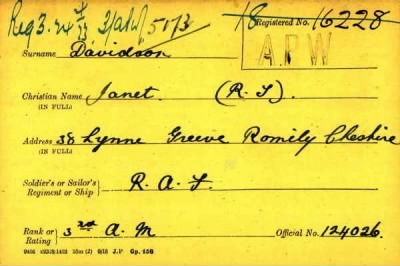 Reg 3. 24/ 3/a/w/ 5073
18 Registered No. 16228
A.P.W
Surname Davidson
Christian Name (IN FULL) Janet. (R. F).
Address (IN FULL) 38 Lynne Greeve Romily Cheshire
Soldier's or Sailor's Regiment or Ship R. A. F.
Rank or Rating 3rd A. M Official No. 124026.